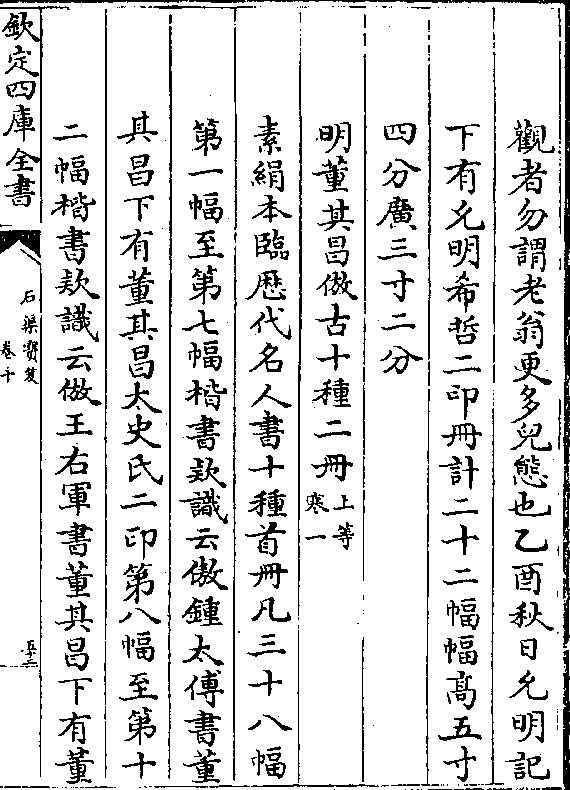 觀者勿謂老翁更多兒態也乙酉秋日允明記
下有允明希哲二印冊計二十二幅幅髙五寸
四分廣三寸二分
明董其昌倣古十種二冊上等寒一
素絹本臨歴代名人書十種首冊凡三十八幅
第一幅至第七幅楷書款識云倣鍾太傅書董
其昌下有董其昌太史氏二印第八幅至第十
二幅楷書款識云倣王右軍書董其昌下有董
欽定四庫全書
石渠寳笈
卷十
五十二